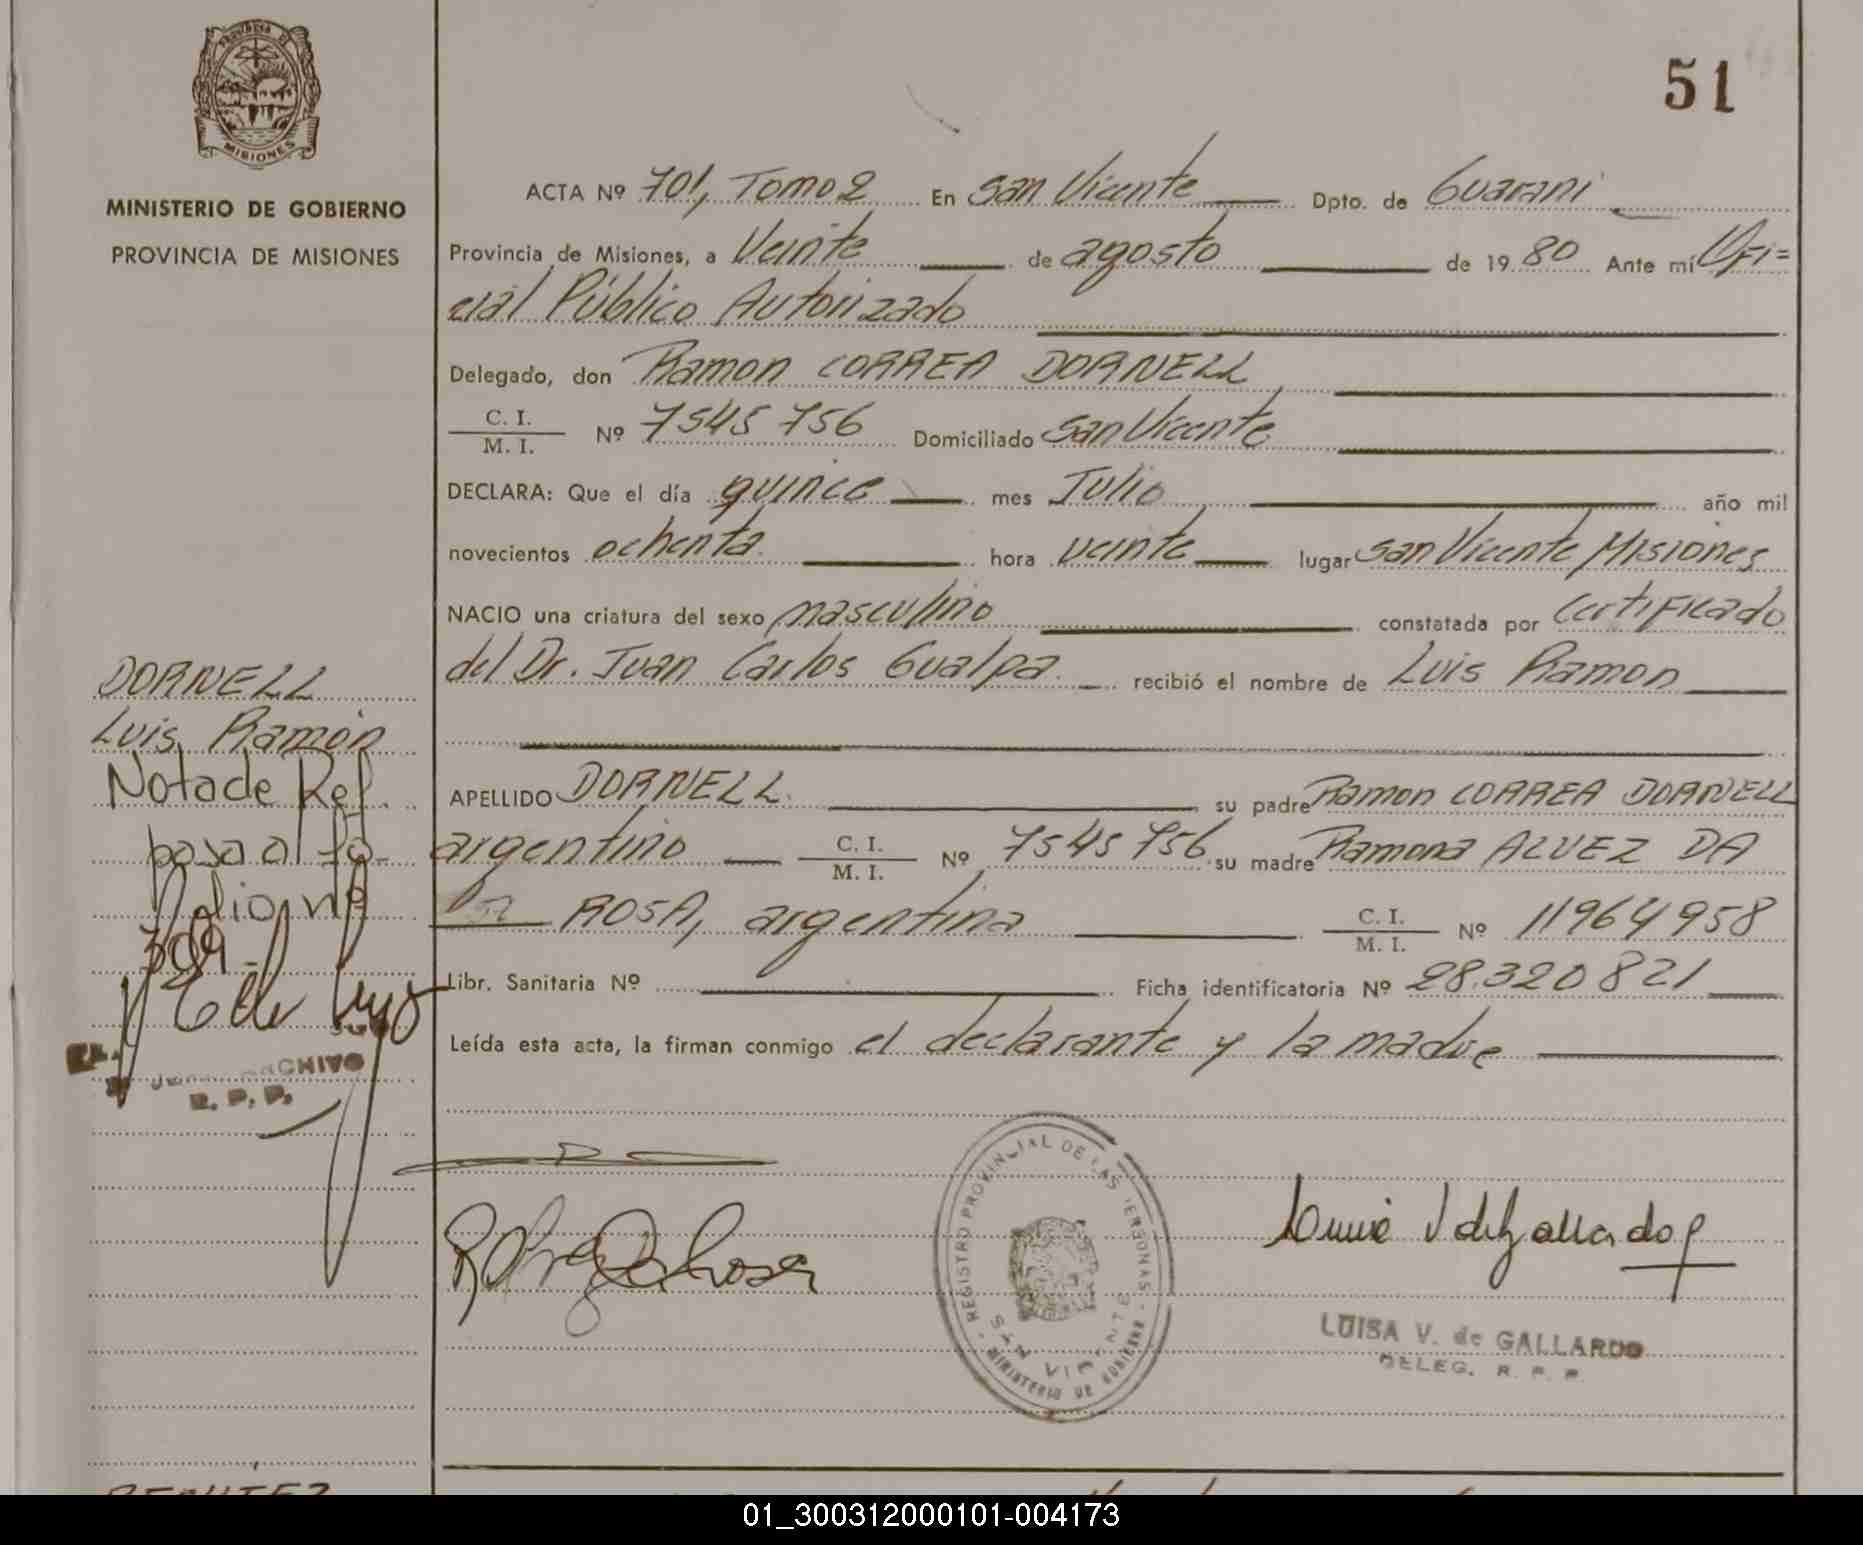 51
PROVINCIA DE
MISIONES
MINISTERIO DE GOBIERNO
PROVINCIA DE MISIONES
ACTA Nº 701, Tomo 2 En San Vicente Dpto. de Guarani
Provincia de Misiones, a Veinte de agosto de 19 80 Ante mí Ofi=
cial Público Autorizado
Delegado, don Ramon CORREA DORNELL
C. I.
M. I. Nº 7545 756 Domiciliado San Vicente
DECLARA: Que el día quince mes Julio año mil
novecientos ochenta hora veinte lugar San Vicente Misiones
NACIO una criatura del sexo masculino constatada por Certificado
del Dr. Juan Carlos Gualpa. recibió el nombre de Luis Ramon
APELLIDO DORNELL su padre Ramon CORREA DORNELL
argentino C. I.
M. I. Nº 7545 756 su madre Ramona ALVEZ DA
ROSA, argentina C. I.
M. I. Nº 11964958
Libr. Sanitaria Nº Ficha identificatoria Nº 28.320 821
Leída esta acta, la firman conmigo el declarante y la madre
DORNELL
Luis Ramón
Nota de Ref.
pasa al fo-
lio nº
309-
ARCHIVO
R. P. P.
REGISTRO PROVINCIAL DE LAS PERSONAS
SAN VICENTE
MINISTERIO DE GOBIERNO
LUISA V. de GALLARDO
DELEG. R. P. P.
BENITEZ
01_300312000101-004173